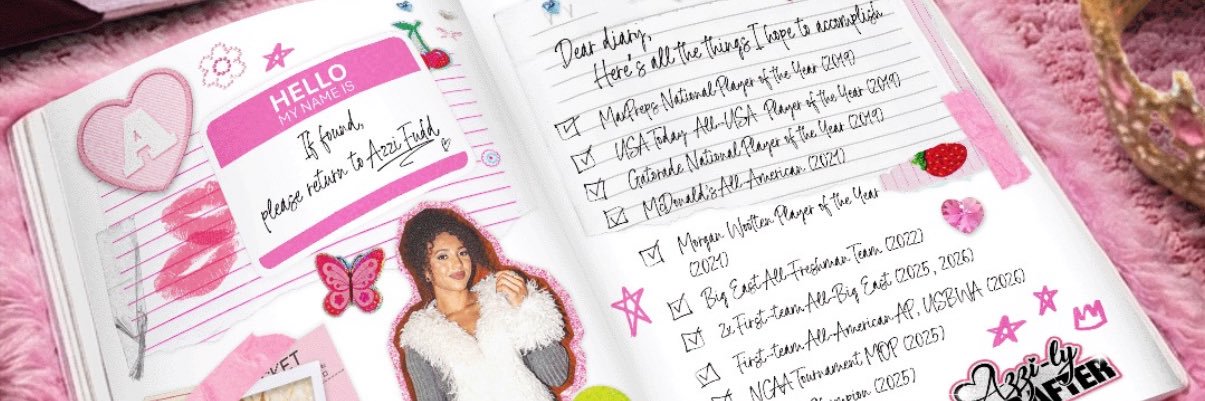 A
HELLO
MY NAME IS
If found,
please return to Azzi Fudd
KET
Dear diary,
Here's all the things I hope to accomplish
MaxPreps National Player of the Year (2019)
USA Today All-USA Player of the Year (2019)
Gatorade National Player of the Year (2019)
McDonald's All-American (2021)
Morgan Wootten Player of the Year
(2021)
Big East All-Freshman Team (2022)
2x First-team All-Big East (2025, 2026)
First-team All-American AP, USBWA (2026)
NCAA Tournament MOP (2025)
(2025)
Azzi-ly
AFTER